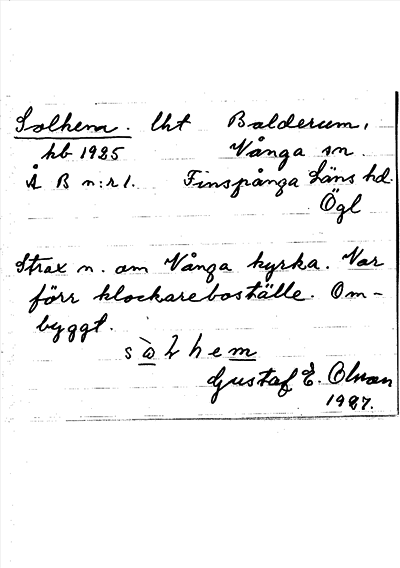 Solhem. lht Balderum,
kb 1925 Vånga sn.
Å B n:r 1. Finspånga Läns hd.
Ögl
Strax n. om Vånga kyrka. Var
förr klockareboställe. Om-
byggt.
hem
Gustaf E. Olson
1927.